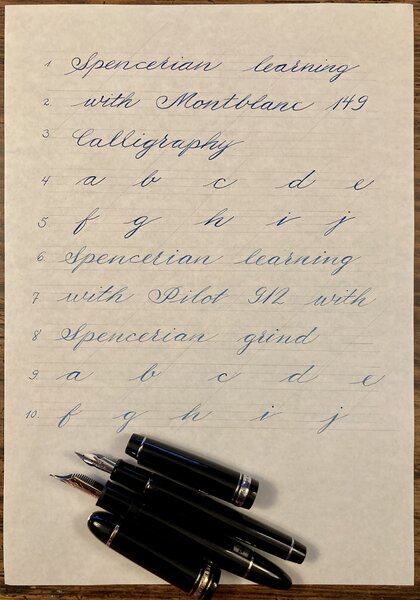 1 Spencerian learning
2 with Montblanc 149
3 Calligraphy
4 a b c d e
5. f g h i j
6. Spencerian learning
7 with Pilot 912 with
8 Spencerian grind
9. a b c d e
10. f g h i j